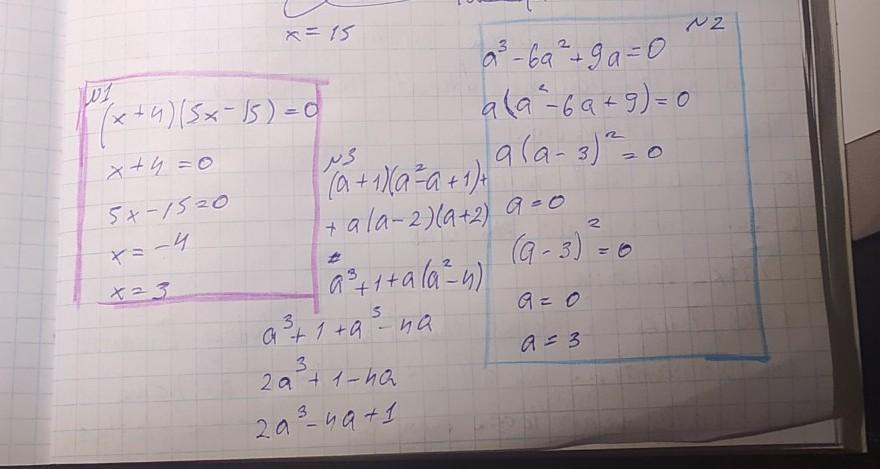 x = 15
№1
(x+4)(5x-15)=0
x+4=0
5x-15=0
x=-4
x=3
№3
(a+1)(a²-a+1)+
+a(a-2)(a+2)
a³+1+a(a²-4)
a³+1+a³-4a
2a³+1-4a
2a³-4a+1
№2
a³-6a²+9a=0
a(a²-6a+9)=0
a(a-3)²=0
a=0
(a-3)²=0
a=0
a=3